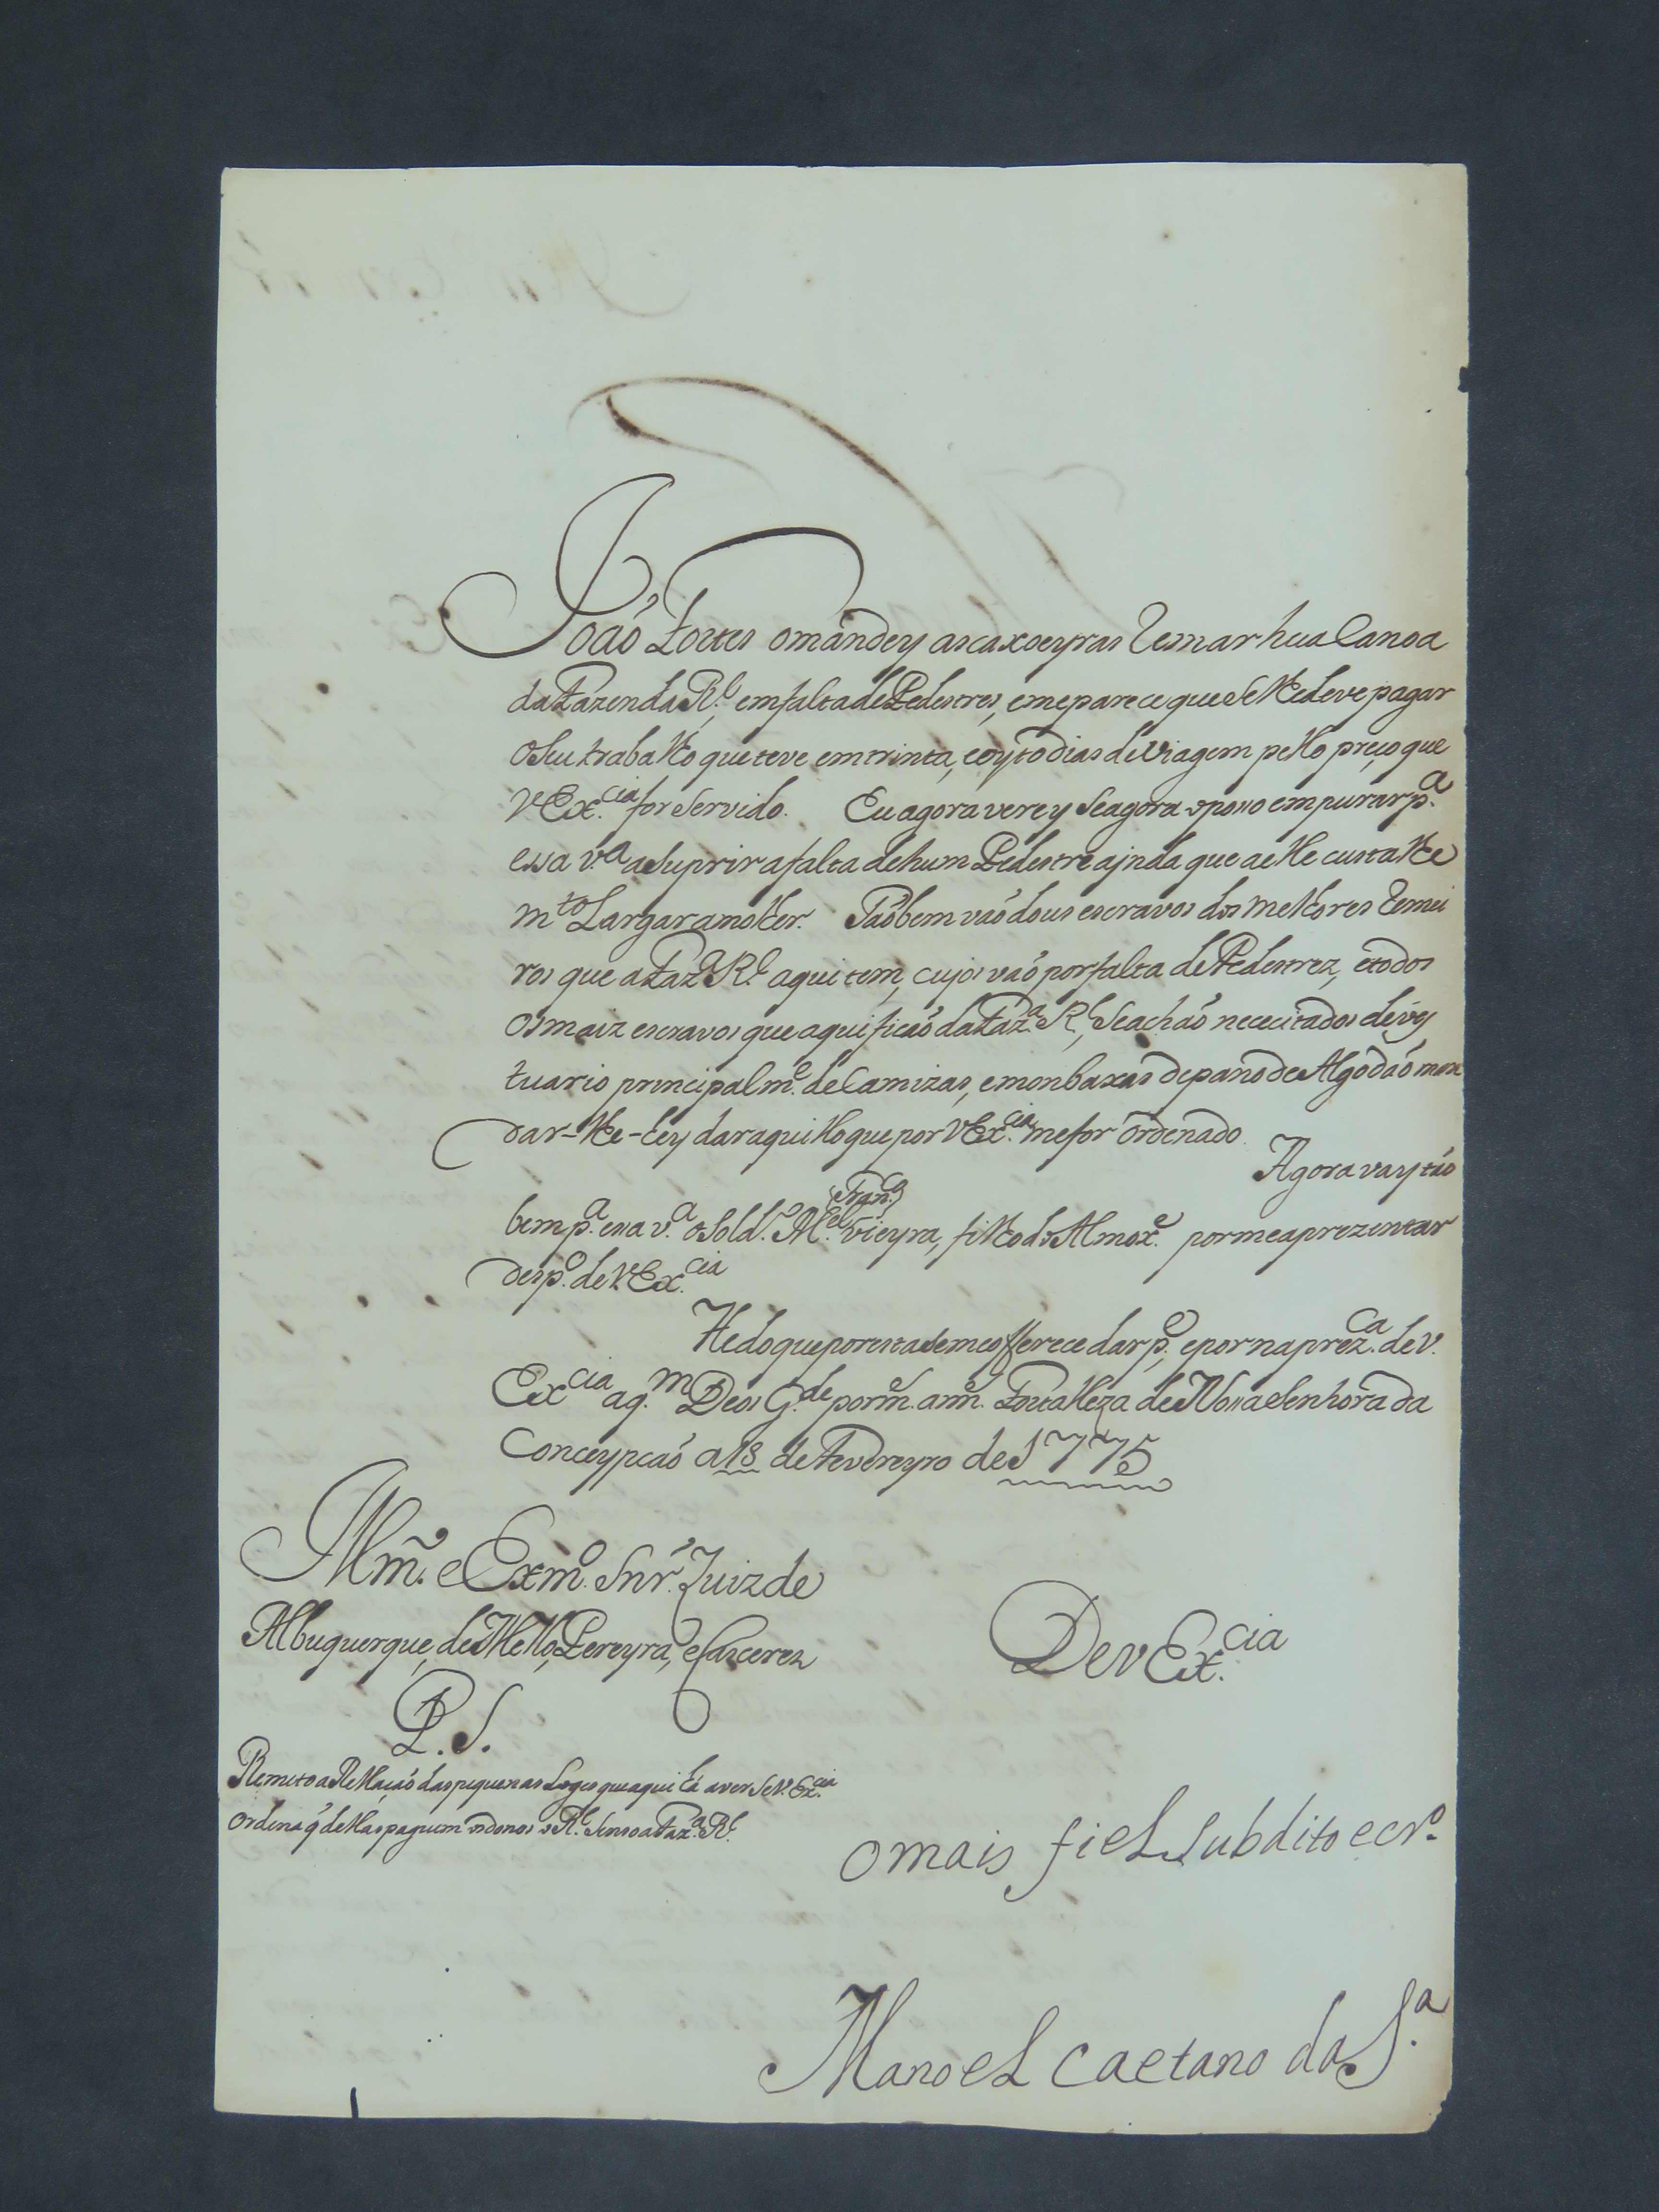 João Fortes o mandey as caxoeyras Remar hua Canoa
da Fazenda R.l, em falta de Pedestres, e me parece que se lhe deve pagar
o seu trabalho que teve em trinta, e oyto dias de viagem pello preço que
V Ex.cia for servido. Eu agora verey se agora o posso empurar p.a
essa v.a a suprir a falta de hum Pedestre ajnda que a elle custalhe
m.to Largar a molher. Tãobem vão dous escravos dos melhores Remei
ros que a Faz.a R.l aqui tem, cujos vaõ por falta de Pedestrez, e todos
os maiz escravos que aqui ficaõ da Faz.a R.l, se achaõ nececitados de ves
tuario principalm.e de Camizas, e monbaxas de pano de Algodaõ man
dar-lhe-ey dar aquillo que por V Ex.cia me for ordenado.
Agora vay tão
bem p.a essa v.a o Sold.o M.el (Fran.co) Vieyra, filho do Almox.e por me aprezentar
desp.o de V Ex.cia
He do que por esta se me offerece dar p.e, e por na prez.ca de V.
Ex.cia a q.m Deos G.de por m. ann. Fortalleza de Nossa Senhora da
Conceypcaõ a 18 de Fevereyro de 1775
Illm. e Exm.o Snr. Luiz de
Albuquerque, de Mello, Pereyra, e Cascerez
De V Ex.cia
P. S.
Remeto a Rellação das pequenas Logeś que aqui há a ver se V. Ex.cia
ordena q̃ dellas pagum os donos o R.l Senso a Faz.a R.l
o mais fiel subdito e cr.o
Manoel Caetano da S.a